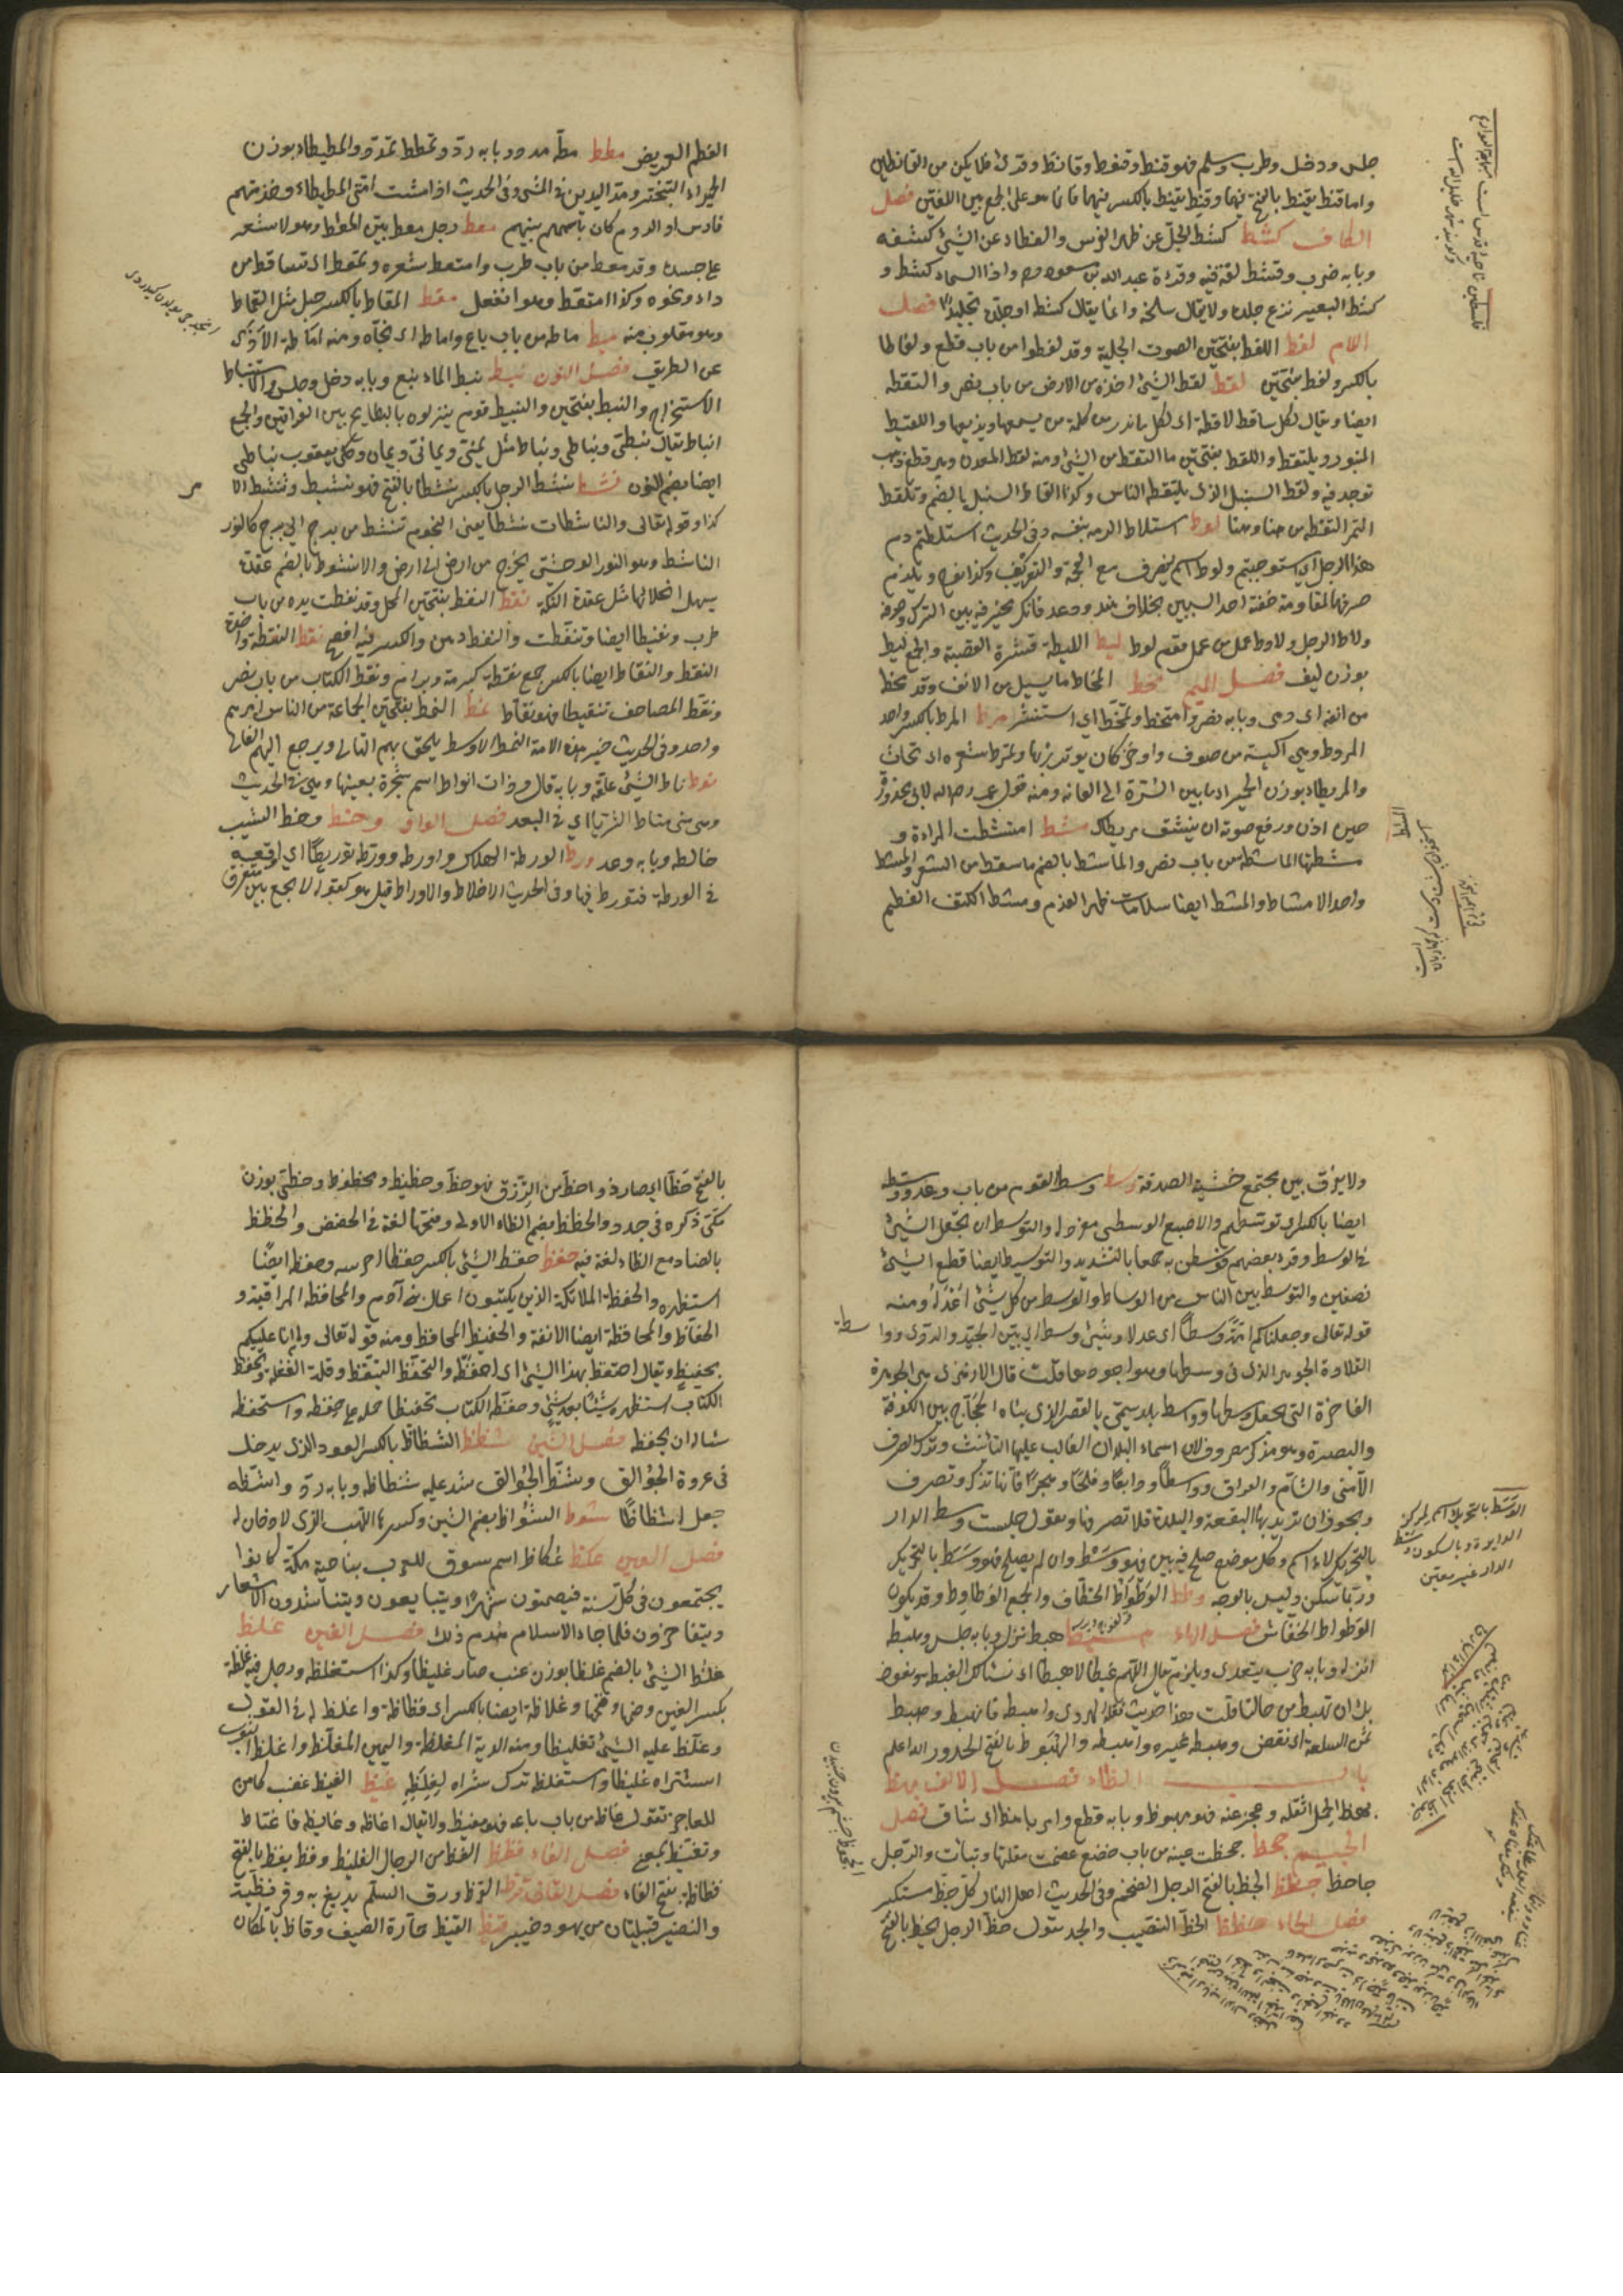 جلس ودخل وطرب وسلم فهو قنط وقنوط وقانط وقرئ فلا يكن من القانطين
واما قنط يقنط بالفتح فيهما وقنط يقنط بالكسر فيهما فانما هو على الجمع بين اللغتين فصل
الكاف كشط كشط الجل عن ظهر الفرس والغطاء عن الشئ كشفه
وبابه ضرب وقشط لغة فيه وقراءة عبد الله بن مسعود واذا السماء كشطت و
كشط البعير نزع جلده ولا يقال سلخه وانما يقال كشطه او جلده تجليدا فصل
اللام لغط اللغط بفتحتين الصوت والجلبة وقد لغطوا من باب قطع ولغاطا
بالكسر ولغط بفتحتين لقط لقط الشئ اخذه من الارض من باب نصر والتقطه
ايضا ويقال لكل ساقطة لاقطة اى لكل ما ندر من كلمة من يسمعها ويذيعها واللقيط
المنبوذ يلتقط واللقط بفتحتين ما التقط من الشئ ومنه لقط المعدن وهو قطع ذهب
توجد فيه ولقط السنبل الذى يلتقطه الناس وكذا لقاط السنبل بالضم وتلقط
التمر التقطه من هنا وهنا لوط استلاط الزمه بنفسه وفى الحديث استلطتم دم
هذا الرجل اى استوجبتم ولوط اسم ينصرف مع العجمة والتعريف وكذا نوح ويلزم
صرفهما لمقاومة خفته احد السببين بخلاف هند ودعد فانك مخير فيه بين الترك وصرفه
ولاط الرجل ولاوط عمل من عمل قوم لوط ليط الليطة قشرة القصبة والجمع ليط
بوزن ليف فصل الميم مخط المخاط ما يسيل من الانف وقد مخط
من انفه اى رمى وبابه نصر وامتخط وتمخط اى استنثر مرط المرط بالكسر واحد
المروط وهى اكسية من صوف او خز كان يؤتزر بها وتمرط شعره اى تحات
والمريطاء بوزن الحميراء ما بين السرة الى العانة ومنه قول عمر رضى الله لابى محذورة
حين اذن ورفع صوته ان ينشق مريطاك مشط امتشطت المراة و
مشطتها الماشطة من باب نصر والماشطة بالضم ما سقط من الشعر والمشط
واحد الامشاط والمشط ايضا سلاميات ظهر القدم ومشط الكتف العظم
العظم العريض مطط مطه مده وبابه رد وتمطط تمدد والمطيطاء بوزن
الحميراء التبختر ومد اليدين فى المشى وفى الحديث اذا مشت امتى المطيطاء وخدمتهم
فارس والروم كان باسهم بينهم معط رجل امعط بين المعط وهو لا شعر
على جسده وقد معط من باب طرب وامتعط شعره وتمعط اى تساقط من
داء ونحوه وكذا امتعط وهو انفعل مقط المقاط بالكسر حبل مثل القماط
وهو مقلوب منه ميط ماط من باب باع واماط اى نحاه ومنه اماطة الاذى
عن الطريق فصل النون نبط نبط الماء نبع وبابه دخل وجلس والاستنباط
الاستخراج والنبط بفتحتين والنبيط قوم ينزلون بالبطايح بين العراقين والجمع
انباط يقال نبطى ونباطى ونباط مثل يمنى ويمانى ويمان وحكى يعقوب نباطى
ايضا بضم النون نشط نشط الرجل بالكسر نشاطا بالفتح فهو نشيط وتنشط لامر
كذا وقوله تعالى والناشطات نشطا يعنى النجوم تنشط من برج الى برج كالثور
الناشط وهو الثور الوحشى يخرج من ارض الى ارض والانشوطة بالضم عقدة
يسهل انحلالها مثل عقدة التكة نفط النفط بفتحتين المجل وقد نفطت يده من باب
طرب ونفيطا ايضا وتنفطت والنفط دهن والكسر فيه افصح نقط النقطة واحدة
النقط والنقاط ايضا بالكسر جمع نقطة كبرمة وبرام ونقط الكتاب من باب نصر
ونقط المصاحف تنقيطا فهو نقاط نمط النمط بفتحتين الجماعة من الناس امرهم
واحد وفى الحديث خير هذه الامة النمط الاوسط يلحق بهم التالى ويرجع اليهم الغالى
نوط ناط الشئ علقه وبابه قال وذات انواط اسم شجرة بعينها وهى فى الحديث
وهو منى مناط الثريا اى فى البعد فصل الواو وخط وخطه الشيب
خالطه وبابه وعد ورط الورطة الهلاك واورطه وورطه توريطا اى اوقعه
فى الورطة فتورط فيها وفى الحديث لا خلاط ولا وراط قيل هو كقوله لا يجمع بين متفرق
ولا يفرق بين مجتمع خشية الصدقة وسط وسط القوم من باب وعد وسطة
ايضا بالكسر اى توسطهم والاصبع الوسطى معروفة والتوسيط ان تجعل الشئ
فى الوسط وقرا بعضهم فوسطن به جمعا بالتشديد والتوسيط ايضا قطع الشئ
نصفين والتوسط بين الناس من الوساطة والوسط من كل شئ اعدله ومنه
قوله تعالى وجعلناكم امة وسطا اى عدلا وشئ وسط اى بين الجيد والردى وواسطة
القلادة الجوهر الذى فى وسطها وهو اجودها قلت قال الازهرى هى الجوهرة
الفاخرة التى تجعل وسطها وواسط بلد سمى بالقصر الذى بناه الحجاج بين الكوفة
والبصرة وهو مذكر مصروف لان اسماء البلدان الغالب عليها التانيث وترك الصرف
الا منى والشام والعراق وواسطا ودابقا وفلجا وهجرا فانها تذكر وتصرف
ويجوز ان تريد بها البقعة والبلدة فلا تصرفها وتقول جلست وسط الدار
بالتحريك لانه اسم وكل موضع صلح فيه بين فهو وسط وان لم يصلح فهو وسط بالتحريك
وربما سكن وليس بالوجه وطط الوطواط الخطاف والجمع الوطاويط وقد يكون
الوطواط الخفاش فصل الهاء هبط هبط نزل وبابه جلس وهبطه
انزله وبابه ضرب يتعدى ويلزم يقال اللهم غبطا لا هبطا اى نسالك الغبطة ونعوذ
بك ان نهبط عن حالنا قلت هذا حديث نقله الهروى واهبطه فانهبط وهبط
ثمن السلعة اى نقص وهبطه غيره واهبطه والهبوط بالفتح الحدور والله اعلم
باب الظاء فصل الالف بهظ
بهظه الحمل اثقله وعجز عنه فهو مبهوظ وبابه قطع وامر باهظ اى شاق فصل
الجيم جحظ جحظت عينه من باب خضع عظمت مقلتها ونتات والرجل
جاحظ جظظ الجظ بالفتح الرجل الضخم وفى الحديث اهل النار كل جظ مستكبر
فصل الحاء حظظ الحظ النصيب والجد تقول حظ الرجل يحظ بالفتح
بالفتح حظا اى صار ذا حظ من الرزق فهو حظ وحظيظ ومحظوظ وحظى بوزن
مكى ذكره فى جدد والحظظ بضم الظاء الاولى وفتحها لغة فى الحضض والحظظ
بالضاد مع الظاء لغة فيه حفظ حفظ الشئ بالكسر حفظا حرسه وحفظه ايضا
استظهره والحفظة الملائكة الذين يكتبون اعمال بنى آدم والمحافظة المراقبة و
الحفاظ والمحافظة ايضا الانفة والحفيظ المحافظ ومنه قوله تعالى وما انا عليكم
بحفيظ ويقال احتفظ بهذا الشئ اى احفظه والتحفظ التيقظ وقلة الغفلة وتحفظ
الكتاب استظهره شيئا بعد شئ وحفظه الكتاب تحفيظا حمله على حفظه واستحفظه
ساله ان يحفظه فصل الشين شظظ الشظاظ بالكسر العود الذى يدخل
فى عروة الجوالق وشظ الجوالق شد عليه شظاظه وبابه رد واشظه
جعل له شظاظا شوظ الشواظ بضم الشين وكسرها اللهب الذى لا دخان له
فصل العين عكظ عكاظ اسم سوق للعرب بناحية مكة كانوا
يجتمعون فى كل سنة فيقيمون شهرا ويتبايعون ويتناشدون الاشعار
ويتفاخرون فلما جاء الاسلام هدم ذلك فصل الغين غلظ
غلظ الشئ بالضم غلظا بوزن عنب صار غليظا وكذا استغلظ ورجل فيه غلظة
بكسر الغين وضمها وفتحها وغلاظة ايضا بالكسر اى فظاظة واغلظ له فى القول
وغلظ عليه الشئ تغليظا ومنه الدية المغلظة واليمين المغلظة واغلظ الثوب
اشتراه غليظا واستغلظه ترك شراه لغلظه غيظ الغيظ غضب كامن
للعاجز تقول غاظه من باب باع فهو مغيظ ولا يقال اغاظه وغايظه فاغتاظ
وتغيظ بمعنى فصل الفاء فظظ الفظ من الرجال الغليظ وفظ يفظ بالفتح
فظاظة بفتح الفاء فصل القاف قرظ القرظ ورق السلم يدبغ به وقريظة
والنضير قبيلتان من يهود خيبر قيظ القيظ حارة الصيف وقاظ بالمكان
الوسط بالتحريك اسم لمركز
الدايرة وبالسكون وسط
الدار غير معين